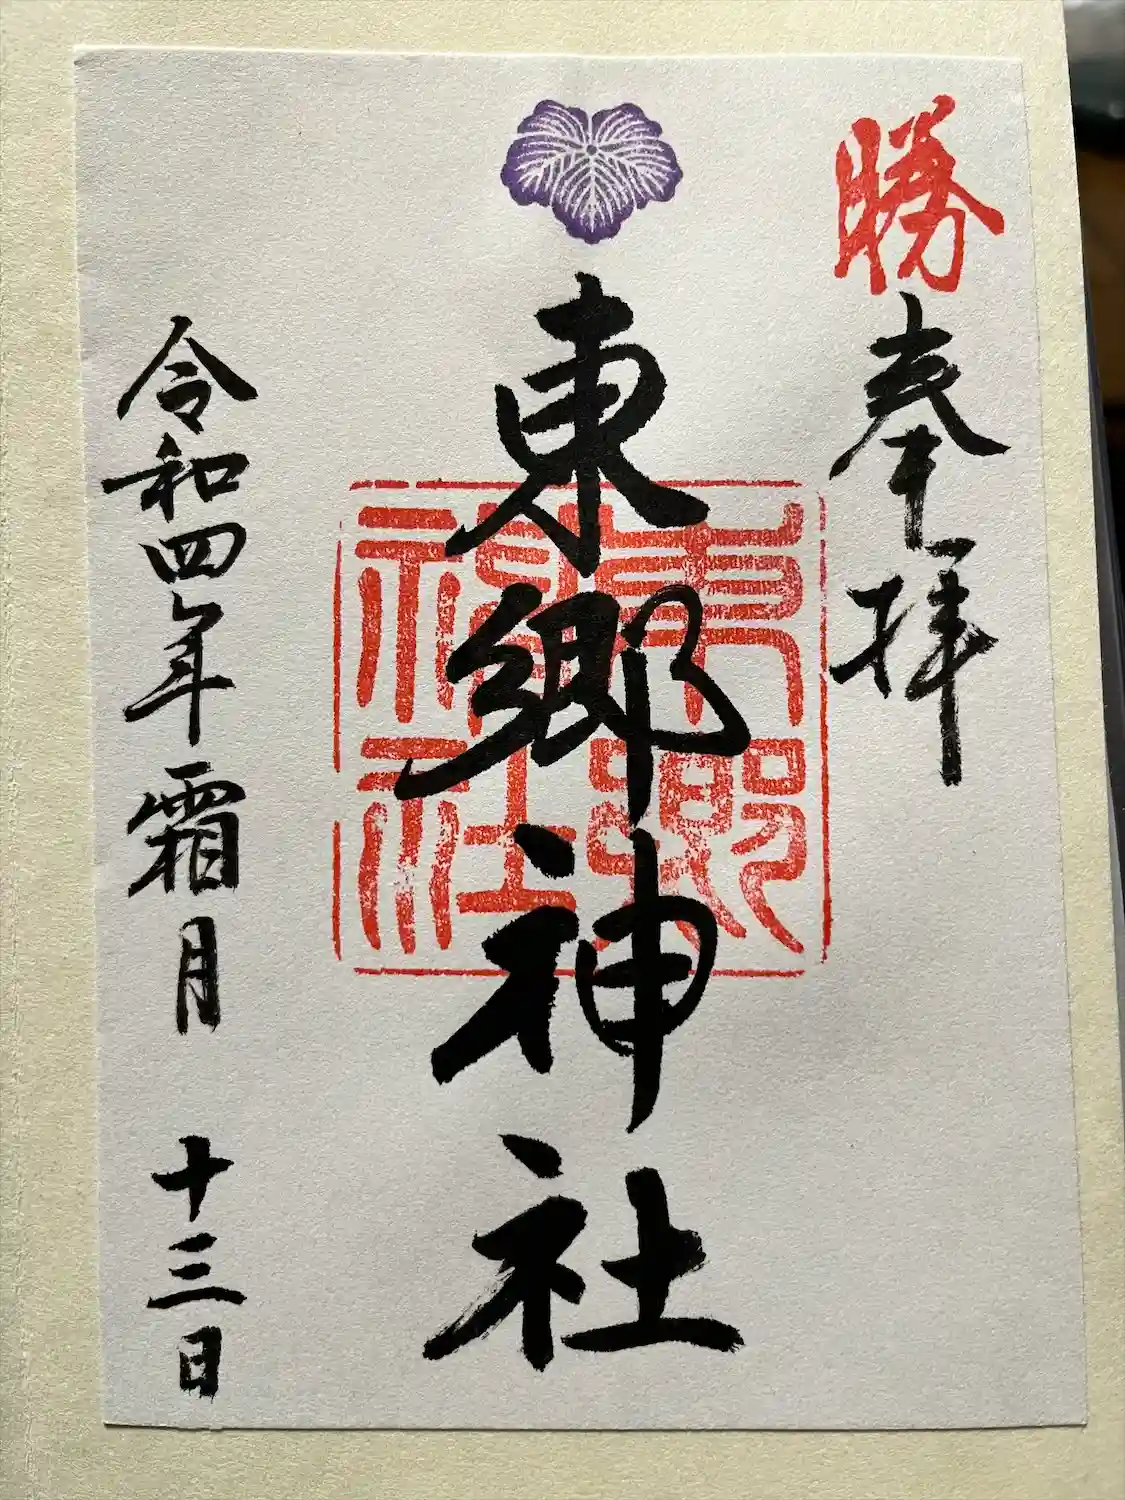 勝
奉拝
東郷神社
東郷神社
令和四年霜月十三日